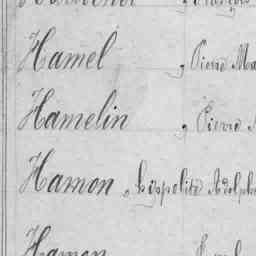 Hamel, Pierre Ma
Hamelin, Pierre
Hamon, hippolite Adolph
Hamon